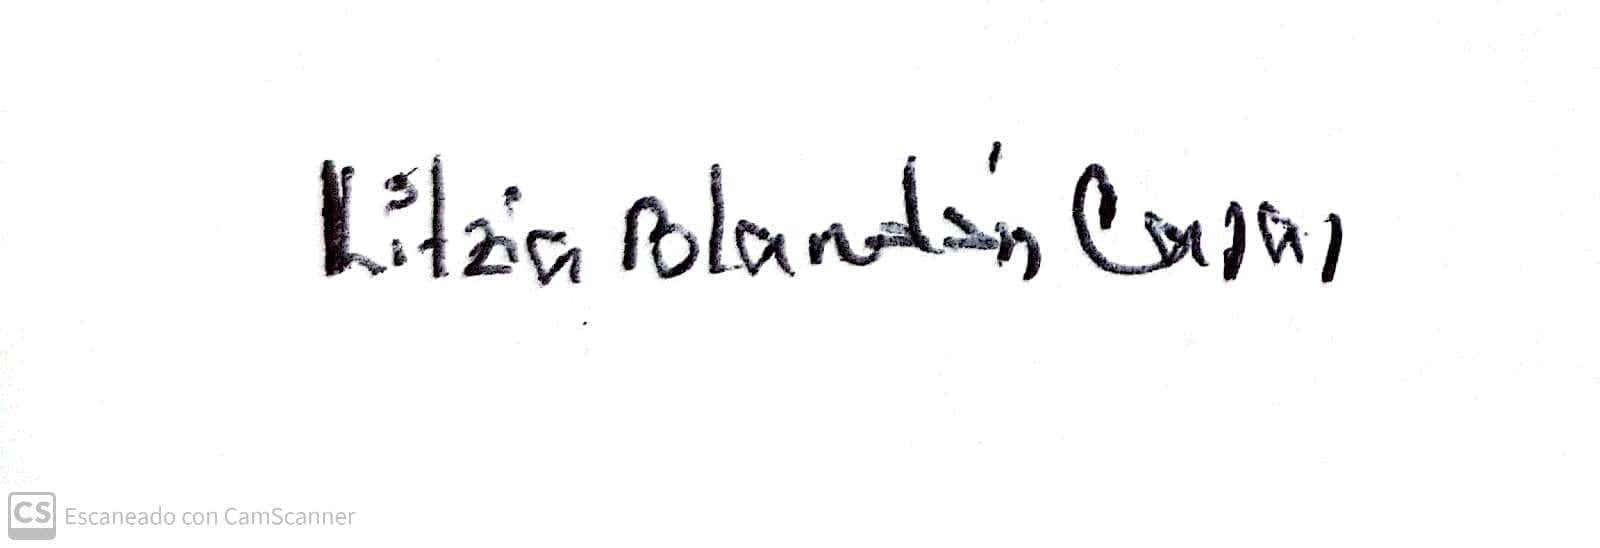 Kitzia Blandín Casas
CS Escaneado con CamScanner